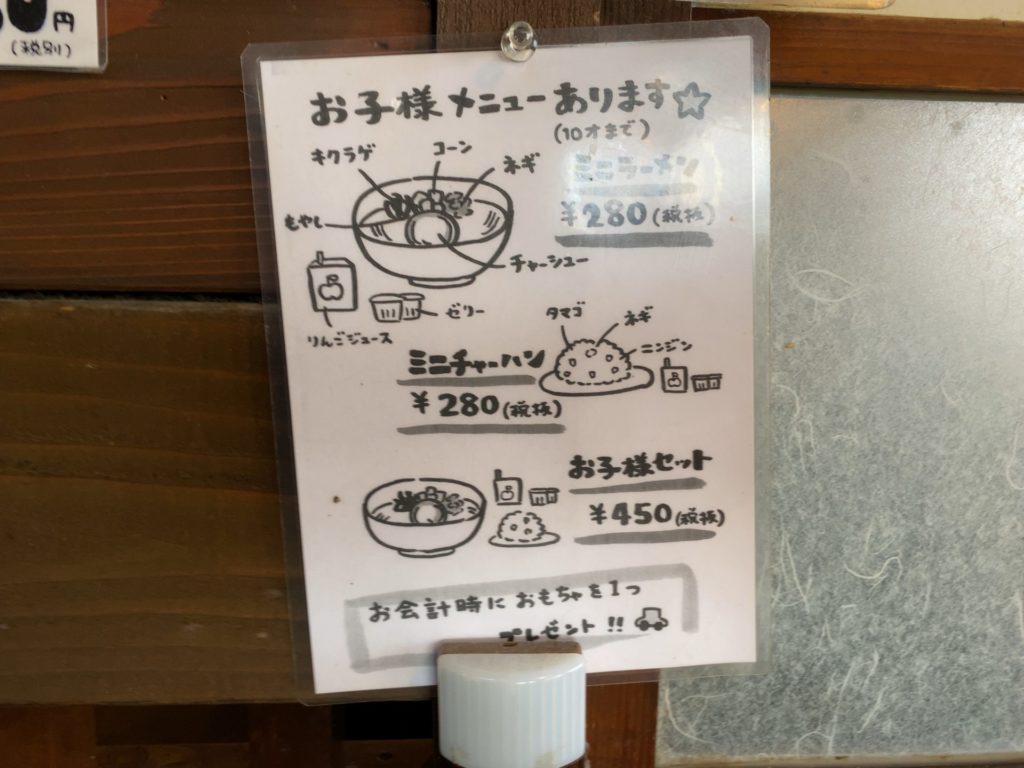 円
(税別)
お子様メニューあります☆
(10才まで)
キクラゲ
コーン
ネギ
もやし
チャーシュー
りんごジュース
ゼリー
ミニラーメン
¥280(税抜)
タマゴ
ネギ
ニンジン
ミニチャーハン
¥280(税抜)
お子様セット
¥450(税抜)
お会計時におもちゃを1つ
プレゼント!!